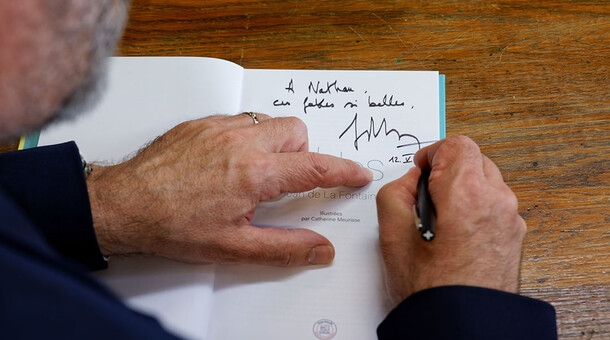 A Nathan,
ces fables si belles.
12.V
les
an de La Fontain
Illustrées
par Catherine Meurisse